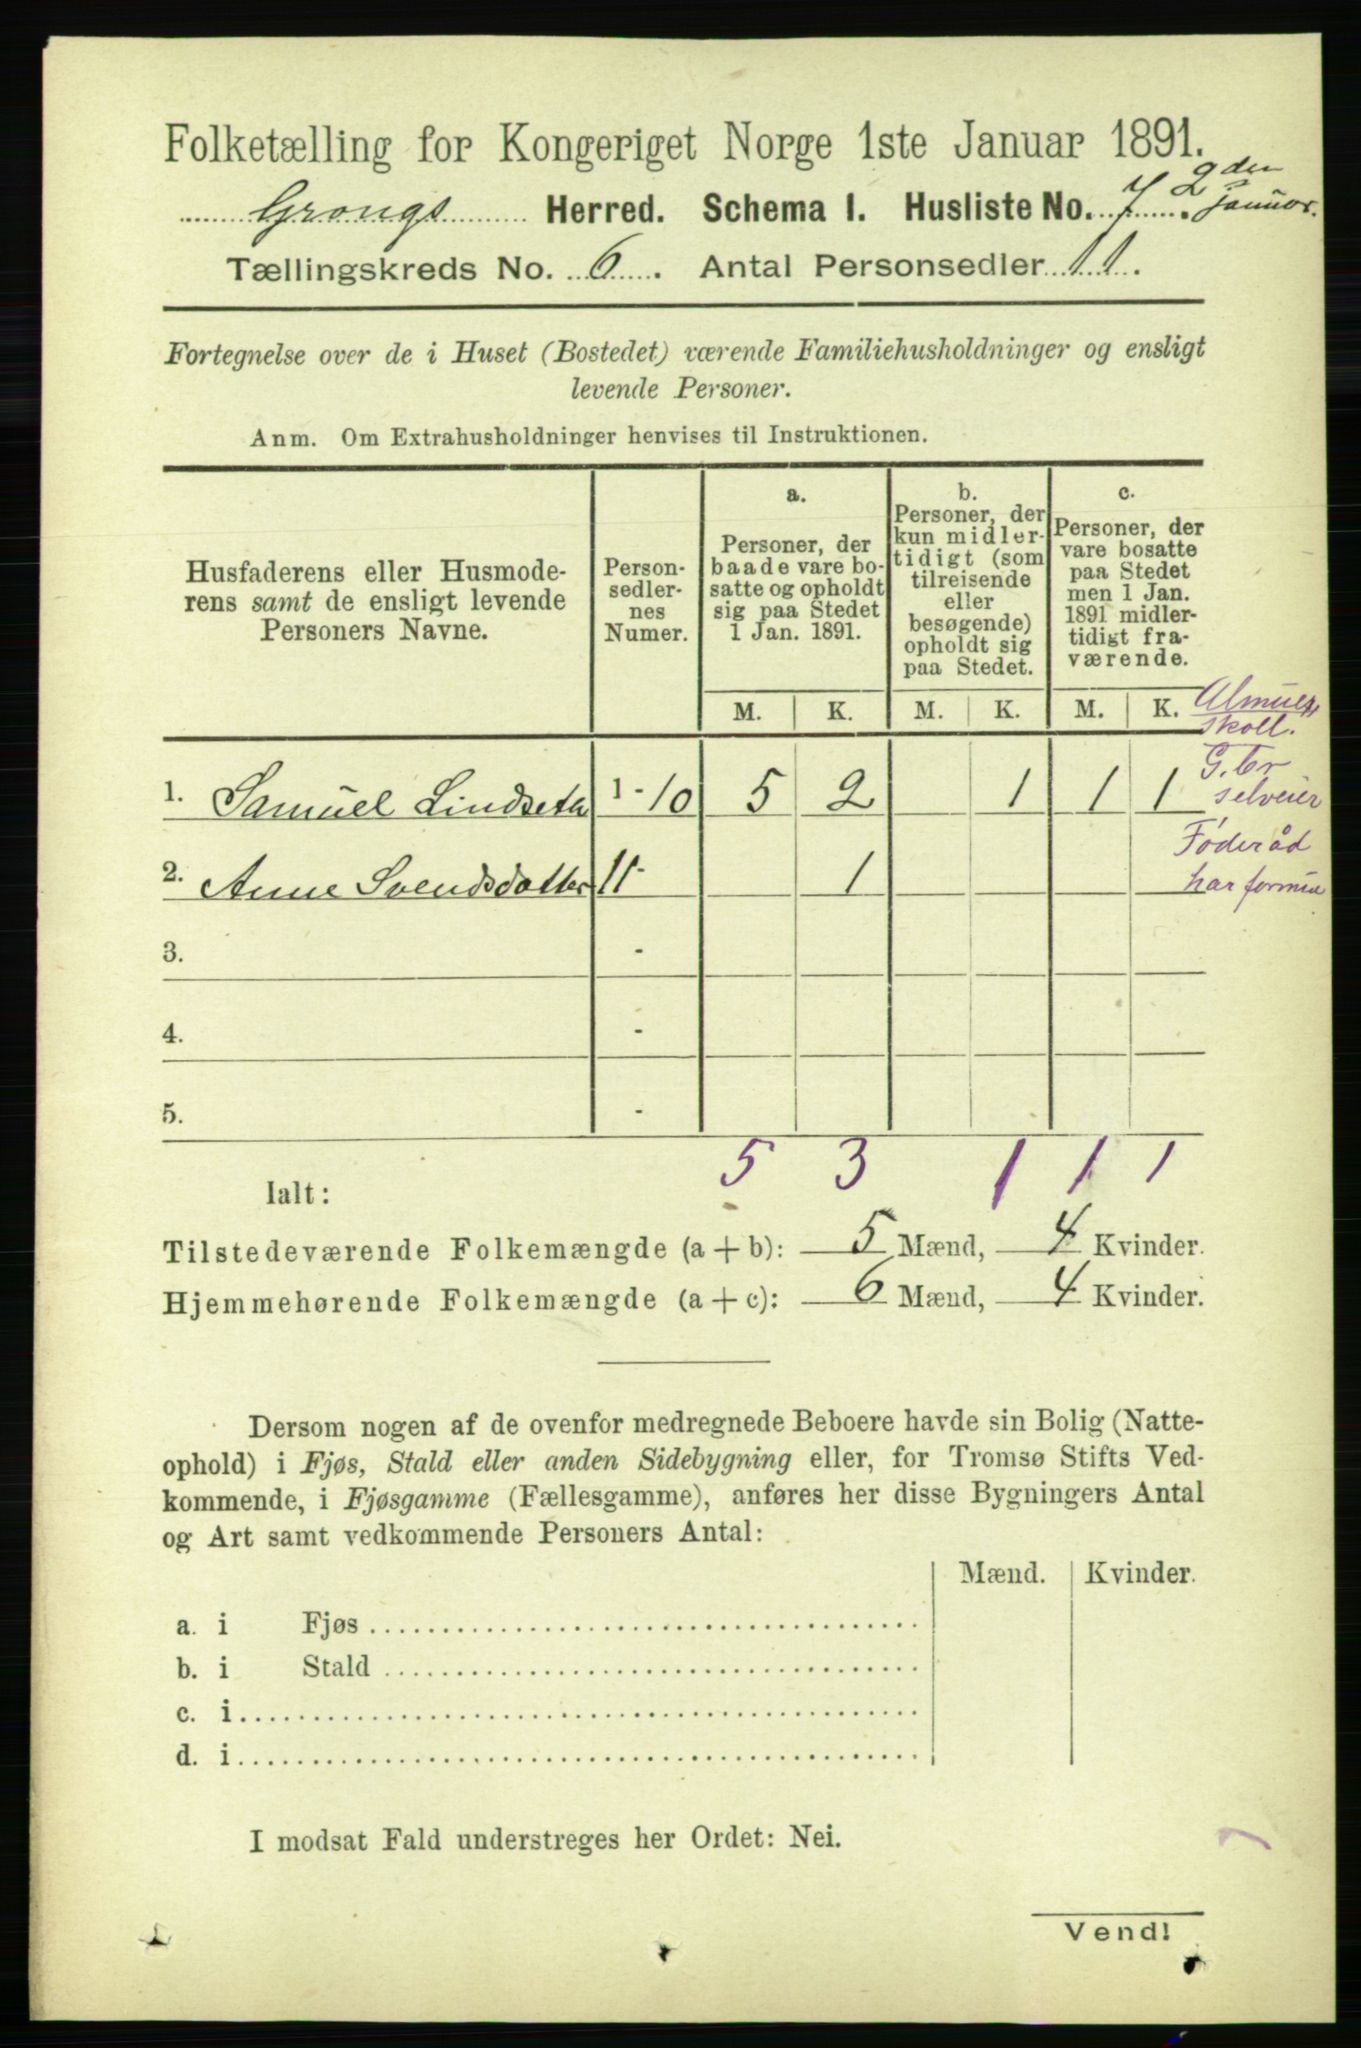 Folketælling for Kongeriget Norge 1ste Januar 1891.
Grongs Herred. Schema I. Husliste No. 7. 2den Januar.
Tællingskreds No. 6. Antal Personsedler 11.
Fortegnelse over de i Huset (Bostedet) værende Familiehusholdninger og ensligt
levende Personer.
Anm. Om Extrahusholdninger henvises til Instruktionen.
Husfaderens eller Husmode-
rens samt de ensligt levende
Personers Navne.
Person-
sedler-
nes
Numer.
a.
Personer, der
baade vare bo-
satte og opholdt
sig paa Stedet
1 Jan. 1891.
b.
Personer, der
kun midler-
tidigt (som
tilreisende
eller
besøgende)
opholdt sig
paa Stedet.
c.
Personer, der
vare bosatte
paa Stedet
men 1 Jan.
1891 midler-
tidigt fra-
værende.
M. K. M. K. M. K.
skoll.
G.br
selveier
1. Samuel Lindseth 1 - 10 5 2 1 1 1
Føderåd
har formue
2. Anne Svendsdatter 11 - 1
3. -
4. -
5. -
Ialt: 5 3 1 1 1
Tilstedeværende Folkemængde (a + b): 5 Mænd, 4 Kvinder.
Hjemmehørende Folkemængde (a + c): 6 Mænd, 4 Kvinder.
Dersom nogen af de ovenfor medregnede Beboere havde sin Bolig (Natte-
ophold) i Fjøs, Stald eller anden Sidebygning eller, for Tromsø Stifts Ved-
kommende, i Fjøsgamme (Fællesgamme), anføres her disse Bygningers Antal
og Art samt vedkommende Personers Antal:
Mænd. Kvinder.
a. i Fjøs
b. i Stald
c. i
d. i
I modsat Fald understreges her Ordet: Nei.
Vend!